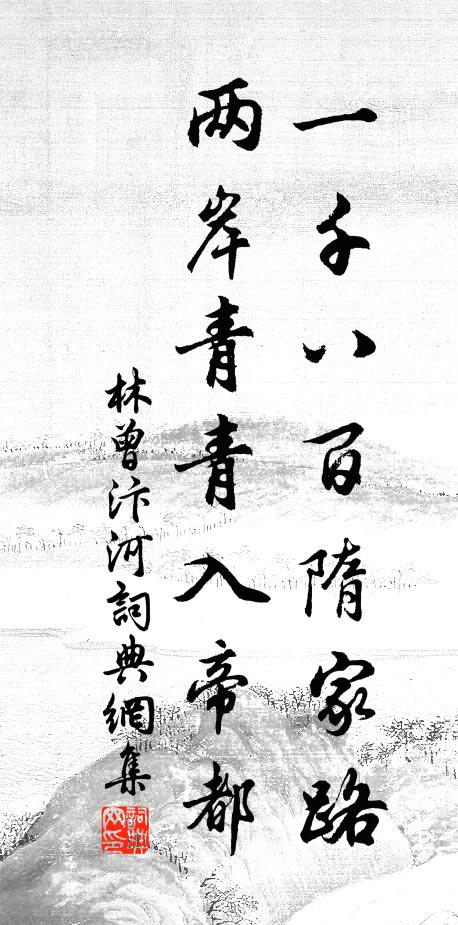 一千八百隋家路
两岸青青入帝都
林曾汴河詞典網集